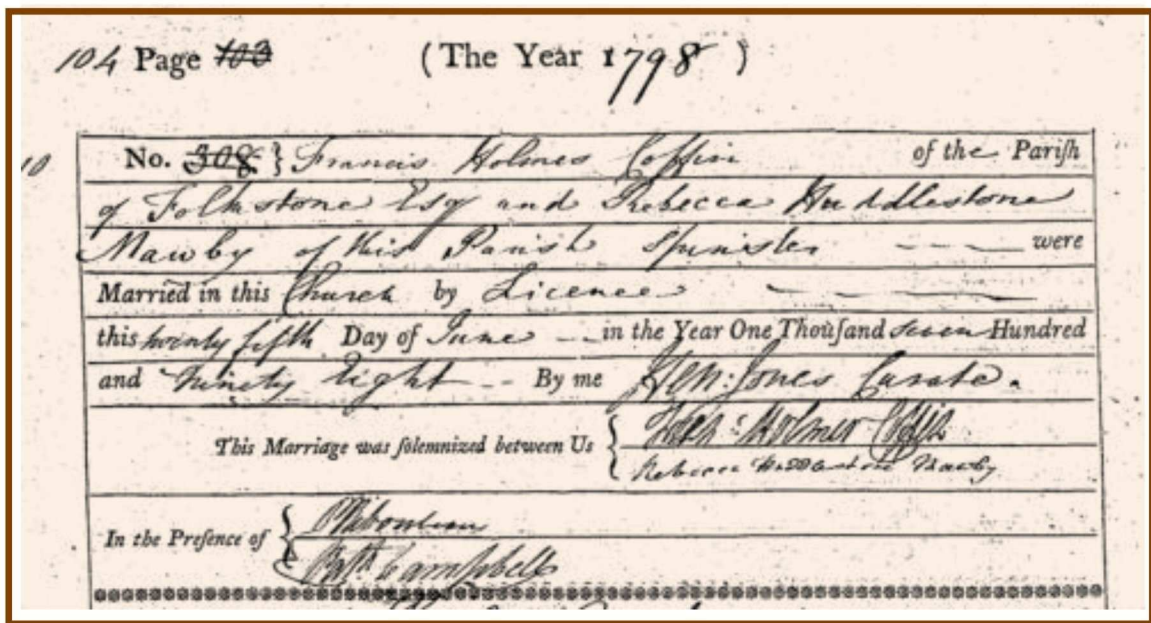 104 Page 103 (The Year 1798)
10
No. 308 } Francis Holmes Coffin of the Parish
of Folkstone Esqr and Rebecca Huddlestone
Mawby of this Parish Spinster were
Married in this Church by Licence
this twenty fifth Day of June in the Year One Thouſand seven Hundred
and Ninety Eight By me Hen: Jones Curate.
This Marriage was ſolemnized between Us { Holmes Coffin
Rebecca Huddlestone Mawby
In the Preſence of {
Campbell